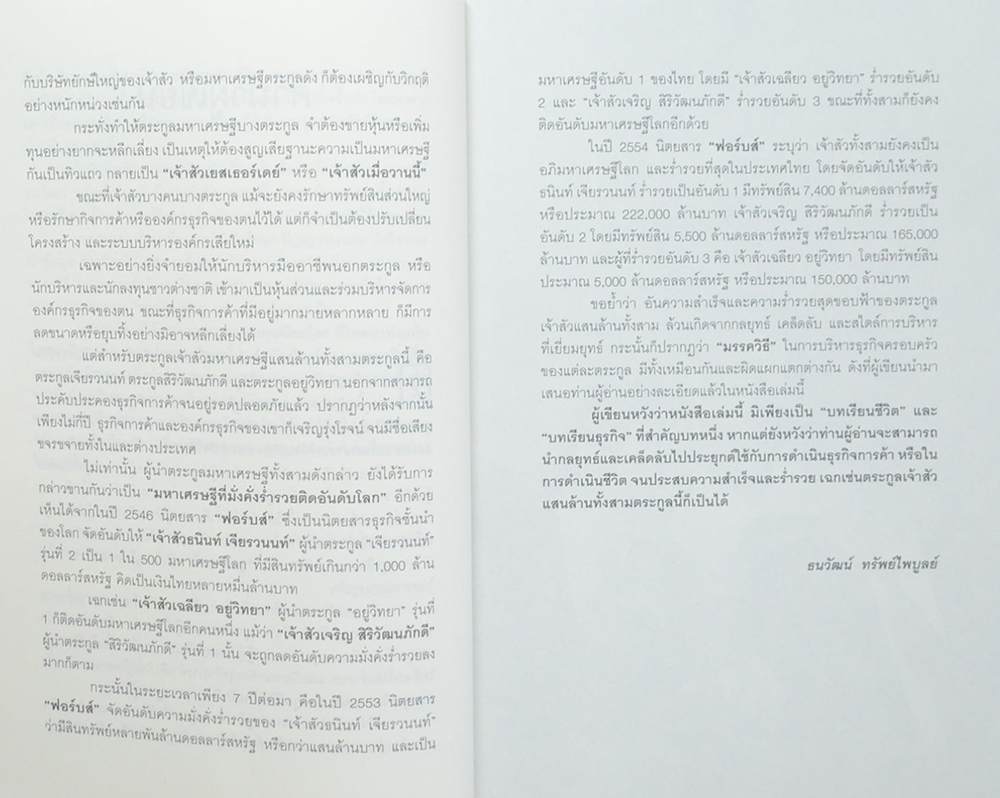 กับบริษัทยักษ์ใหญ่ของเจ้าสัว หรือมหาเศรษฐีตระกูลดัง ก็ต้องเผชิญกับวิกฤติ
อย่างหนักหน่วงเช่นกัน
กระทั่งทำให้ตระกูลมหาเศรษฐีบางตระกูล จำต้องขายหุ้นหรือเพิ่ม
ทุนอย่างยากจะหลีกเลี่ยง เป็นเหตุให้ต้องสูญเสียฐานะความเป็นมหาเศรษฐี
กันเป็นทิวแถว กลายเป็น “เจ้าสัวเยสเธอร์เดย์” หรือ “เจ้าสัวเมื่อวานนี้”
ขณะที่เจ้าสัวบางคนบางตระกูล แม้จะยังคงรักษาทรัพย์สินส่วนใหญ่
หรือรักษากิจการค้าหรือองค์กรธุรกิจของตนไว้ได้ แต่ก็จำเป็นต้องปรับเปลี่ยน
โครงสร้าง และระบบบริหารองค์กรเสียใหม่
เฉพาะอย่างยิ่งจำยอมให้นักบริหารมืออาชีพนอกตระกูล หรือ
นักบริหารและนักลงทุนชาวต่างชาติ เข้ามาเป็นหุ้นส่วนและร่วมบริหารจัดการ
องค์กรธุรกิจของตน ขณะที่ธุรกิจการค้าที่มีอยู่มากมายหลากหลาย ก็มีการ
ลดขนาดหรือยุบทิ้งอย่างมิอาจหลีกเลี่ยงได้
แต่สำหรับตระกูลเจ้าสัวมหาเศรษฐีแสนล้านทั้งสามตระกูลนี้ คือ
ตระกูลเจียรวนนท์ ตระกูลสิริวัฒนภักดี และตระกูลอยู่วิทยา นอกจากสามารถ
ประคับประคองธุรกิจการค้าจนอยู่รอดปลอดภัยแล้ว ปรากฏว่าหลังจากนั้น
เพียงไม่กี่ปี ธุรกิจการค้าและองค์กรธุรกิจของเขาก็เจริญรุ่งโรจน์ จนมีชื่อเสียง
ขจรขจายทั้งในและต่างประเทศ
ไม่เท่านั้น ผู้นำตระกูลมหาเศรษฐีทั้งสามดังกล่าว ยังได้รับการ
กล่าวขานกันว่าเป็น “มหาเศรษฐีที่มั่งคั่งร่ำรวยติดอันดับโลก” อีกด้วย
เห็นได้จากในปี 2546 นิตยสาร “ฟอร์บส์” ซึ่งเป็นนิตยสารธุรกิจชั้นนำ
ของโลก จัดอันดับให้ “เจ้าสัวธนินท์ เจียรวนนท์” ผู้นำตระกูล “เจียรวนนท์”
รุ่นที่ 2 เป็น 1 ใน 500 มหาเศรษฐีโลก ที่มีสินทรัพย์เกินกว่า 1,000 ล้าน
ดอลลาร์สหรัฐ คิดเป็นเงินไทยหลายหมื่นล้านบาท
เฉกเช่น “เจ้าสัวเฉลียว อยู่วิทยา” ผู้นำตระกูล “อยู่วิทยา” รุ่นที่
1 ก็ติดอันดับมหาเศรษฐีโลกอีกคนหนึ่ง แม้ว่า “เจ้าสัวเจริญ สิริวัฒนภักดี”
ผู้นำตระกูล “สิริวัฒนภักดี” รุ่นที่ 1 นั้น จะถูกลดอันดับความมั่งคั่งร่ำรวยลง
มากก็ตาม
กระนั้นในระยะเวลาเพียง 7 ปีต่อมา คือในปี 2553 นิตยสาร
“ฟอร์บส์” จัดอันดับความมั่งคั่งร่ำรวยของ “เจ้าสัวธนินท์ เจียรวนนท์”
ว่ามีสินทรัพย์หลายพันล้านดอลลาร์สหรัฐ หรือกว่าแสนล้านบาท และเป็น
มหาเศรษฐีอันดับ 1 ของไทย โดยมี “เจ้าสัวเฉลียว อยู่วิทยา” ร่ำรวยอันดับ
2 และ “เจ้าสัวเจริญ สิริวัฒนภักดี” ร่ำรวยอันดับ 3 ขณะที่ทั้งสามก็ยังคง
ติดอันดับมหาเศรษฐีโลกอีกด้วย
ในปี 2554 นิตยสาร “ฟอร์บส์” ระบุว่า เจ้าสัวทั้งสามยังคงเป็น
อภิมหาเศรษฐีโลก และร่ำรวยที่สุดในประเทศไทย โดยจัดอันดับให้เจ้าสัว
ธนินท์ เจียรวนนท์ ร่ำรวยเป็นอันดับ 1 มีทรัพย์สิน 7,400 ล้านดอลลาร์สหรัฐ
หรือประมาณ 222,000 ล้านบาท เจ้าสัวเจริญ สิริวัฒนภักดี ร่ำรวยเป็น
อันดับ 2 โดยมีทรัพย์สิน 5,500 ล้านดอลลาร์สหรัฐ หรือประมาณ 165,000
ล้านบาท และผู้ที่ร่ำรวยอันดับ 3 คือ เจ้าสัวเฉลียว อยู่วิทยา โดยมีทรัพย์สิน
ประมาณ 5,000 ล้านดอลลาร์สหรัฐ หรือประมาณ 150,000 ล้านบาท
ขอย้ำว่า อันความสำเร็จและความร่ำรวยสุดขอบฟ้าของตระกูล
เจ้าสัวแสนล้านทั้งสาม ล้วนเกิดจากกลยุทธ์ เคล็ดลับ และสไตล์การบริหาร
ที่เยี่ยมยุทธ์ กระนั้นก็ปรากฏว่า “มรรควิธี” ในการบริหารธุรกิจครอบครัว
ของแต่ละตระกูล มีทั้งเหมือนกันและผิดแผกแตกต่างกัน ดังที่ผู้เขียนนำมา
เสนอท่านผู้อ่านอย่างละเอียดแล้วในหนังสือเล่มนี้
ผู้เขียนหวังว่าหนังสือเล่มนี้ มิเพียงเป็น “บทเรียนชีวิต” และ
“บทเรียนธุรกิจ” ที่สำคัญบทหนึ่ง หากแต่ยังหวังว่าท่านผู้อ่านจะสามารถ
นำกลยุทธ์และเคล็ดลับไปประยุกต์ใช้กับการดำเนินธุรกิจการค้า หรือใน
การดำเนินชีวิต จนประสบความสำเร็จและร่ำรวย เฉกเช่นตระกูลเจ้าสัว
แสนล้านทั้งสามตระกูลนี้ก็เป็นได้
ธนวัฒน์ ทรัพย์ไพบูลย์